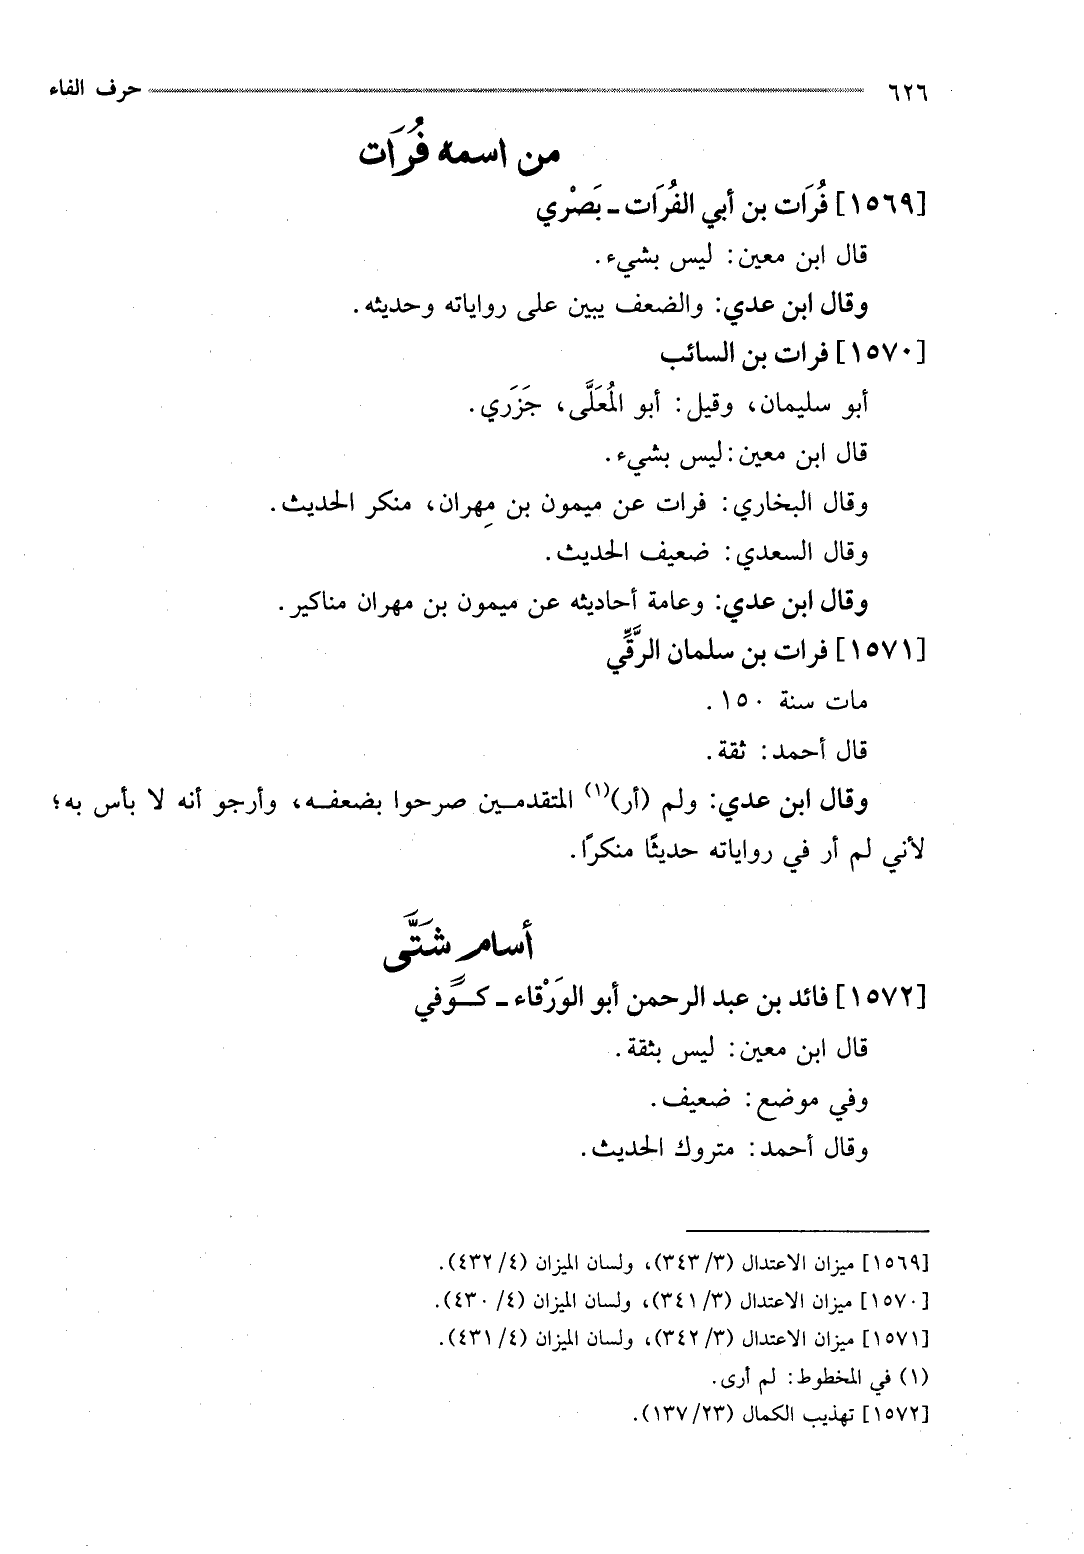 ٦٢٦ حرف الفاء
من اسمه فُرَات
[١٥٦٩] فُرَات بن أبي الفُرَات ـ بَصْري
قال ابن معين: ليس بشيء.
وقال ابن عدي: والضعف يبين على رواياته وحديثه.
[١٥٧٠] فرات بن السائب
أبو سليمان، وقيل: أبو المُعَلَّى، جَزَري.
قال ابن معين: ليس بشيء.
وقال البخاري: فرات عن ميمون بن مِهران، منكر الحديث.
وقال السعدي: ضعيف الحديث.
وقال ابن عدي: وعامة أحاديثه عن ميمون بن مهران مناكير.
[١٥٧١] فرات بن سلمان الرَّقِّي
مات سنة ١٥٠.
قال أحمد: ثقة.
وقال ابن عدي: ولم (أر)(١) المتقدمـين صرحوا بضعفـه، وأرجو أنه لا بأس به؛
لأني لم أر في رواياته حديثًا منكرًا.
أسام شَتَّى
[١٥٧٢] فائد بن عبد الرحمن أبو الوَرْقاء ـ كـوفي
قال ابن معين: ليس بثقة.
وفي موضع: ضعيف.
وقال أحمد: متروك الحديث.
[١٥٦٩] ميزان الاعتدال (٣/ ٣٤٣)، ولسان الميزان (٤/ ٤٣٢).
[١٥٧٠] ميزان الاعتدال (٣/ ٣٤١)، ولسان الميزان (٤/ ٤٣٠).
[١٥٧١] ميزان الاعتدال (٣/ ٣٤٢)، ولسان الميزان (٤/ ٤٣١).
(١) في المخطوط: لم أرى.
[١٥٧٢] تهذيب الكمال (٢٣/ ١٣٧).